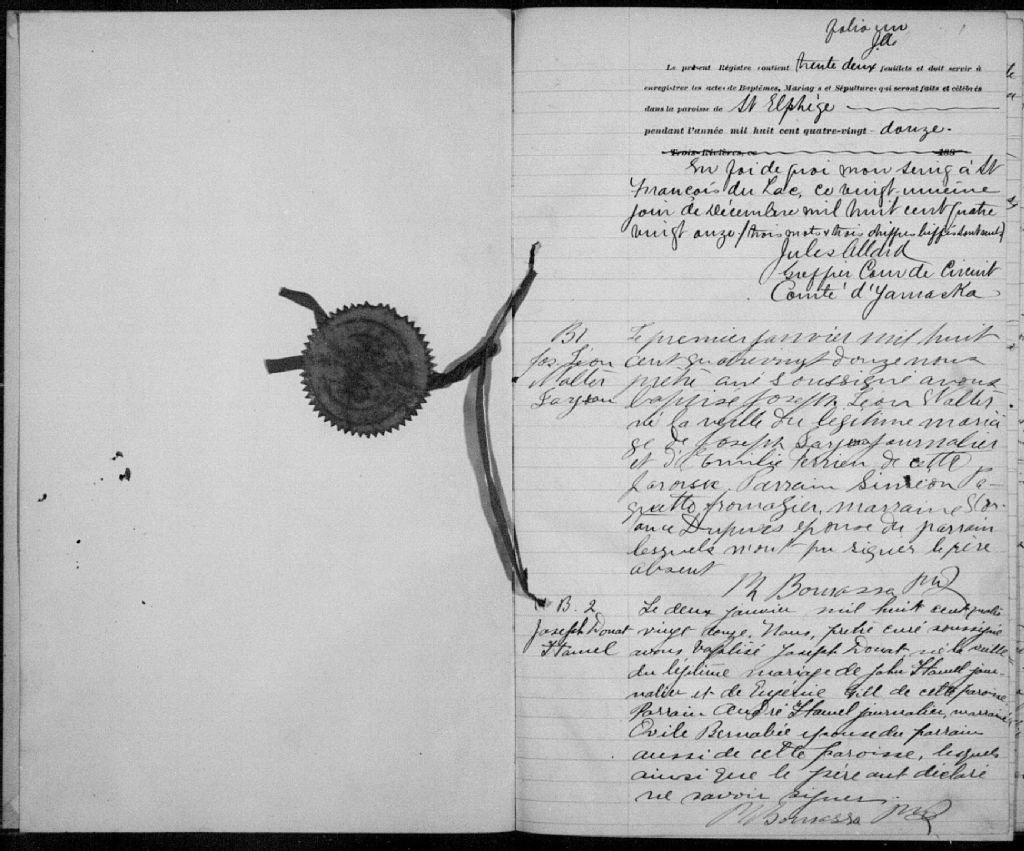 folio un
J.A.
Le présent Régistre contient trente deux feuillets et doit servir à
enregistrer les actes de Baptêmes, Mariages et Sépultures qui seront faits et célébrés
dans la paroisse de St Elphége
pendant l'année mil huit cent quatre-vingt-douze.
Trois-Rivières, ce 188
En foi de quoi mon seing à St
François du Lac, ce vingt unième
jour de Décembre mil huit cent quatre
vingt onze / trois mots & trois chiffres biffés sont nuls)
Jules Allard
Greffier Cour de Circuit
Comté d'Yamaska
B1
Jos. Léon
Walter
Le premier janvier mil huit
cent quatrevingt douze nous
prêtre curé soussigné avons
baptisé Joseph Leon Walter
né la veille du légitime maria
ge de Joseph journalier
et d'Emilie Terrien de cette
paroisse. Parrain Siméon Pa-
quette fromagier, marraine
Dupuis épouse du parrain
lesquels n'ont pu signer le père
absent
Bourassa ptre
B. 2
Joseph Donat
Hamel
Le deux janvier mil huit cent quatre
vingt douze, Nous, prêtre curé soussigné
avons baptisé Joseph Donat né la veille
du légitime mariage de John Hamel jour-
nalier et de Eugénie Gill de cette paroisse
Parrain André Hamel journalier, marraine
Exile Bernabée epouse du parrain
aussi de cette paroisse, lesquels
ainsi que le père ont déclaré
ne savoir signer.
Bourassa ptre